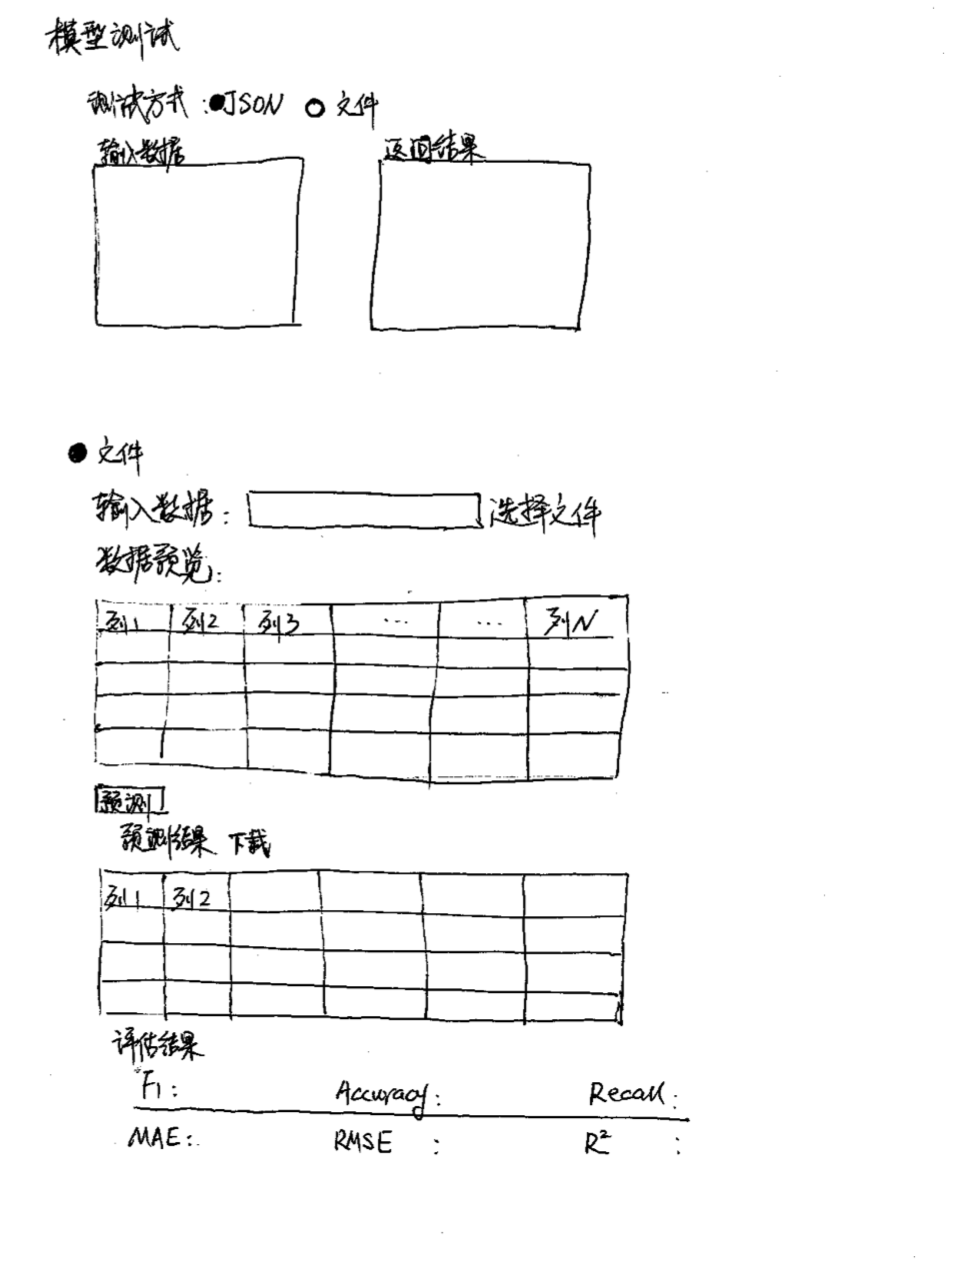 模型测试
测试方式：JSON 文件
输入数据 返回结果
文件
输入数据： 选择文件
数据预览：
列1 列2 列3 ... ... 列N
预测
预测结果 下载
列1 列2
评估结果
F1： Accuracy： Recall：
MAE： RMSE ： R² ：